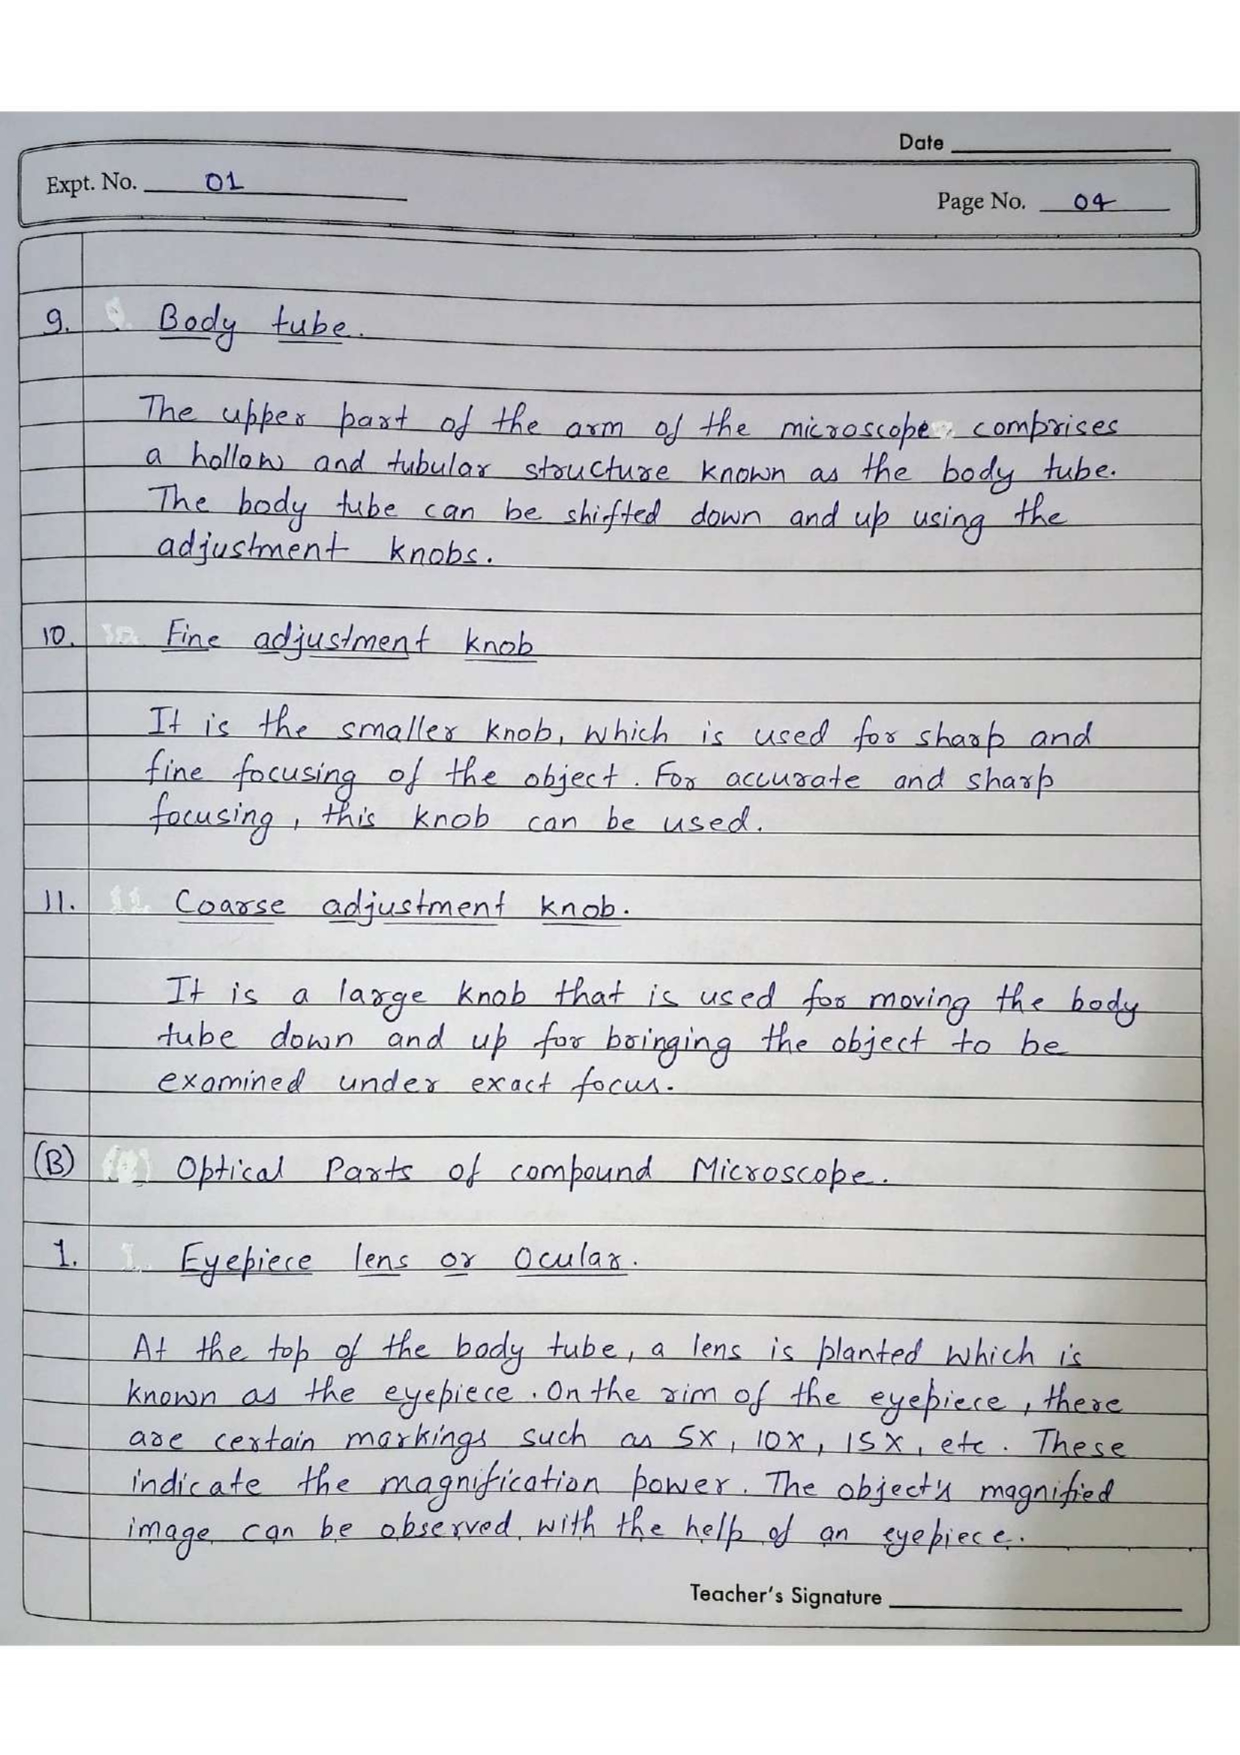 Date
Expt. No. 01
Page No. 04
9. Body tube.
The upper part of the arm of the microscope comprises
a hollow and tubular structure known as the body tube.
The body tube can be shifted down and up using the
adjustment knobs.
10. Fine adjustment knob
It is the smaller knob, which is used for sharp and
fine focusing of the object. For accurate and sharp
focusing, this knob can be used.
11. Coarse adjustment knob.
It is a large knob that is used for moving the body
tube down and up for bringing the object to be
examined under exact focus.
(B) Optical Parts of compound Microscope.
1. Eyepiece lens or Ocular.
At the top of the body tube, a lens is planted which is
known as the eyepiece. On the rim of the eyepiece, there
are certain markings such as 5X, 10X, 15X, etc. These
indicate the magnification power. The object's magnified
image can be observed with the help of an eyepiece.
Teacher's Signature